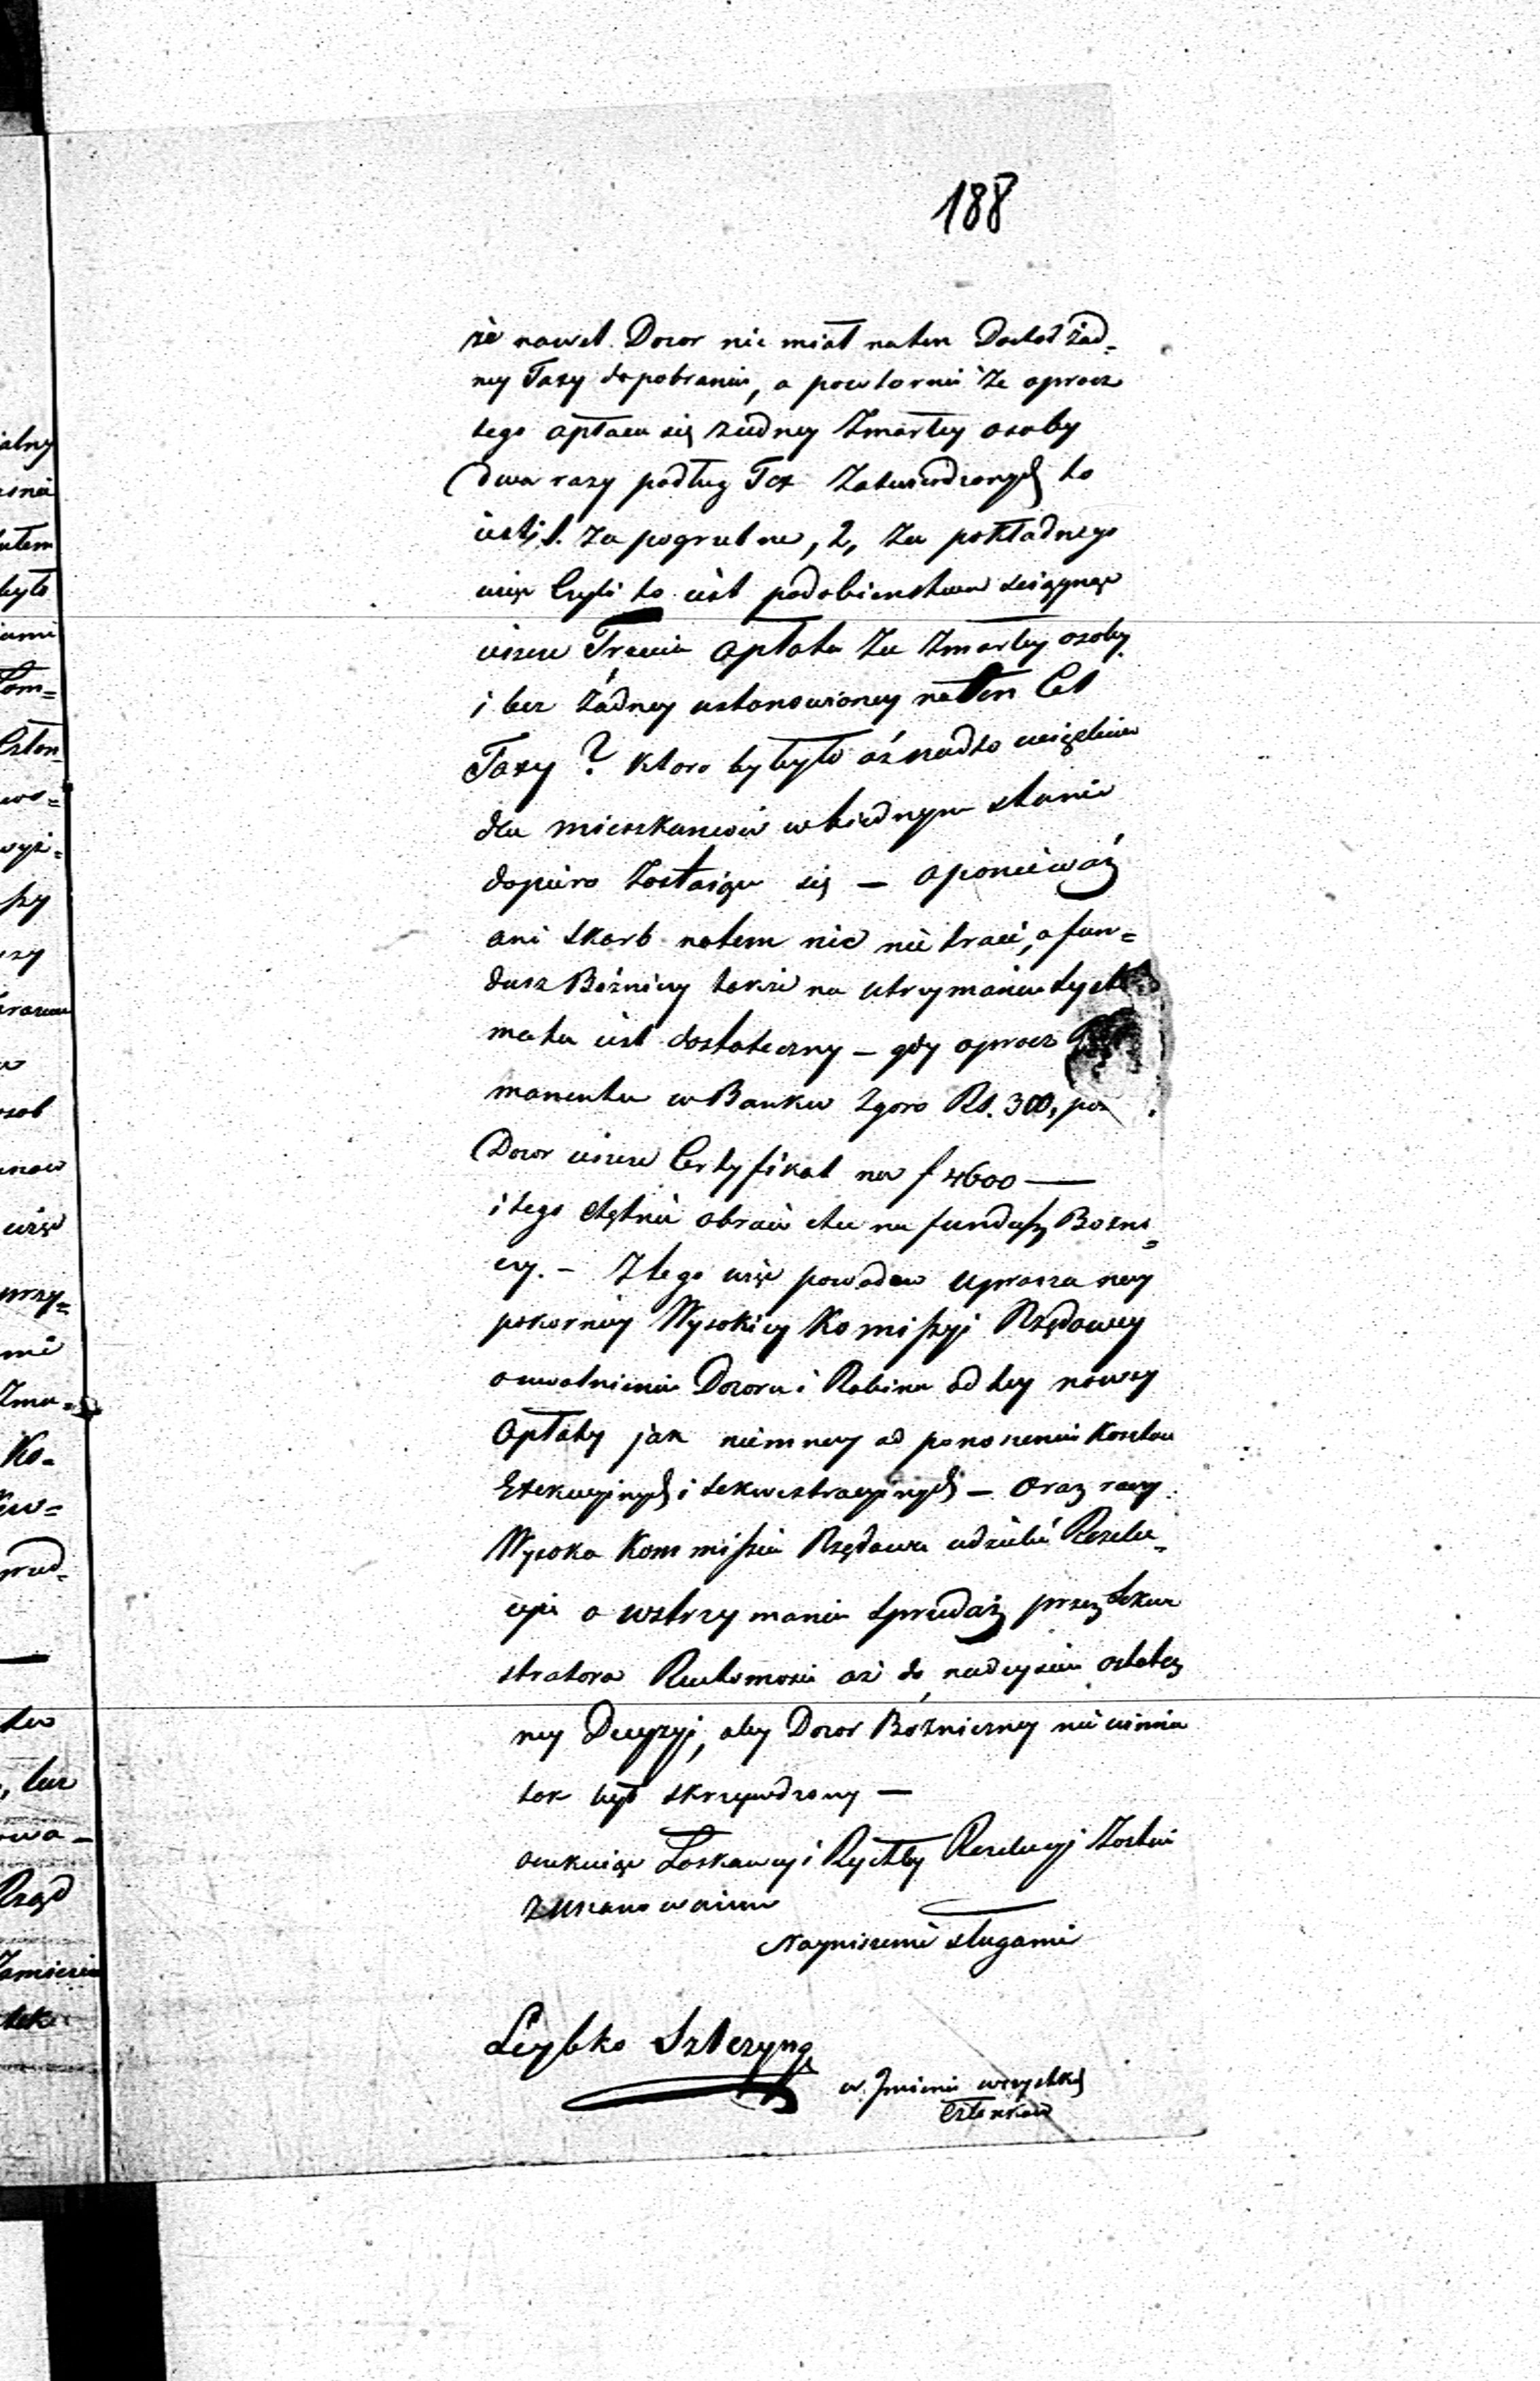 188
że nawet Dozor nie miał na ten Dochod żad=
ney Taxy do pobrania, a powtornie że oprocz
tego opłaca się żadney Zmarłey osoby
dwa razy podług Tax Zatwierdzonych to
iest, 1. za pogrzebne, 2, Za pokładnego
więc Czyli to iest podobienstwem sciągnąć
ieszcze Trzecia opłata Za Zmarłey osoby
i bez żadney ustanowioney na ten Cel
Taxy? ktoro by było aż nadto
dla mieszkancow w biednym stanie
dopiero Zostaiąc się — a ponieważ
ani skarb na tem nic nie traci, a fun=
dusz Bóżnicy także na utrzymanie tych
iest dostateczny — gdy oprocz
manentu w Banku Zgoro Rs. 300,
Dozor ieszcze Certyfikat na f 4600 —
i tego chętnie obraca chce na fundusz Bozni=
cy. — Z tego więc powodu uprasza nay
pokorniey Wysokiey Komissyi Rządowey
o uwolnienia Dozoru i Rabina od tey nowey
Opłaty jak niemniey od ponoszenia Kosztow
Exekucyinych i sekwestracyinych — Oraz raczy
Wysoka Kommissia Rządowa udzielić Rezolu=
cyi o wstrzymania sprzedaż przez sekwe
stratora Ruchomosci aż do nadeyscia ostatecz
ney Decyzyi, aby Dozor Bóżniczny nie winnie
tak był skrzywdzony —
oczekuiąc Łaskawey i Rychłey Rezolucyi Zostaie
z uszanowaniem
Nayniższemi sługami
Leybko Szterzyng
w Jmieniu wszystkich
Członkow